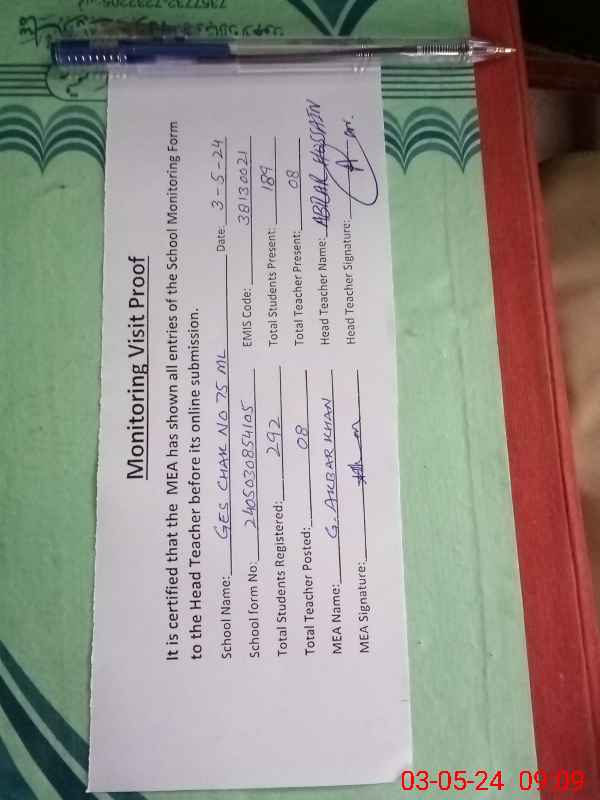 Monitoring Visit Proof
It is certified that the MEA has shown all entries of the School Monitoring Form
to the Head Teacher before its online submission.
School Name: GES CHAK NO 75 ML Date: 3-5-24
School form No: 2405030854105 EMIS Code: 38130021
Total Students Registered: 292 Total Students Present: 189
Total Teacher Posted: 08 Total Teacher Present: 08
MEA Name: G. AKBAR KHAN Head Teacher Name: ABRAR HUSSAIN
MEA Signature: Head Teacher Signature:
03-05-24 09:09